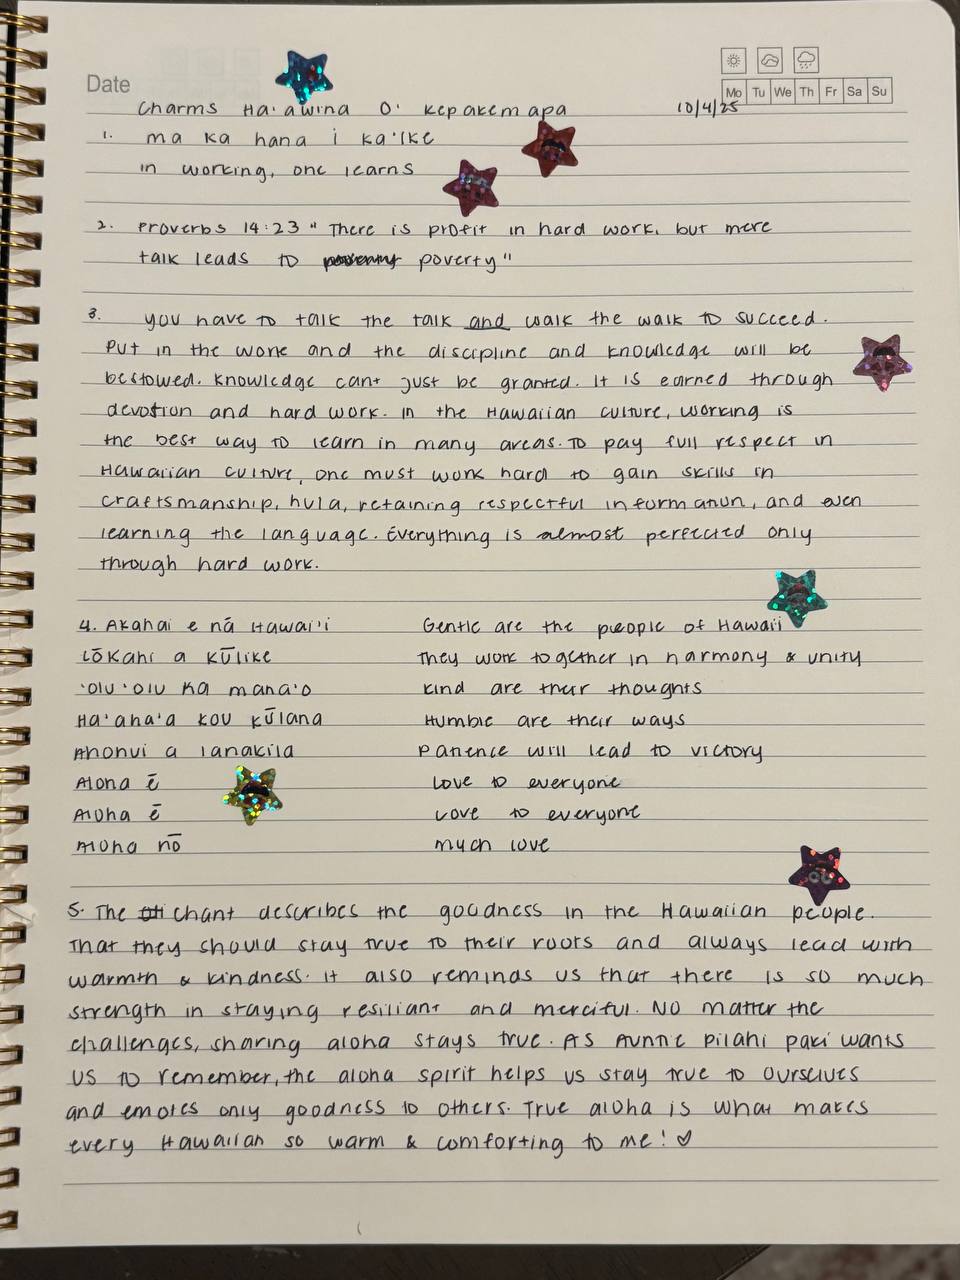 Date
Mo Tu We Th Fr Sa Su
Charms Ha'awina O' Kepakemapa 10/4/25
1. ma ka hana i ka'ike
in working, one learns
2. Proverbs 14:23 "There is profit in hard work, but mere
talk leads to poverty"
3. you have to talk the talk and walk the walk to succeed.
Put in the work and the discipline and knowledge will be
bestowed. Knowledge cant just be granted. It is earned through
devotion and hard work. In the Hawaiian culture, working is
the best way to learn in many areas. To pay full respect in
Hawaiian culture, one must work hard to gain skills in
craftsmanship, hula, retaining respectful information, and even
learning the language. Everything is almost perfected only
through hard work.
4. Akahai e nā Hawai'i Gentle are the people of Hawaii
Lōkahi a kūlike They work together in harmony & unity
'olu'olu ka mana'o Kind are their thoughts
Ha'aha'a kou kūlana Humble are their ways
Ahonui a lanakila Patience will lead to victory
Aloha ē Love to everyone
Aloha ē Love to everyone
Aloha nō much love
5. The chant describes the goodness in the Hawaiian people.
That they should stay true to their roots and always lead with
warmth & kindness. It also reminds us that there is so much
strength in staying resiliant and merciful. No matter the
challenges, sharing aloha stays true. As Auntie Pilahi Paki wants
us to remember, the aloha spirit helps us stay true to ourselves
and emotes only goodness to others. True aloha is what makes
every Hawaiian so warm & comforting to me! ♡